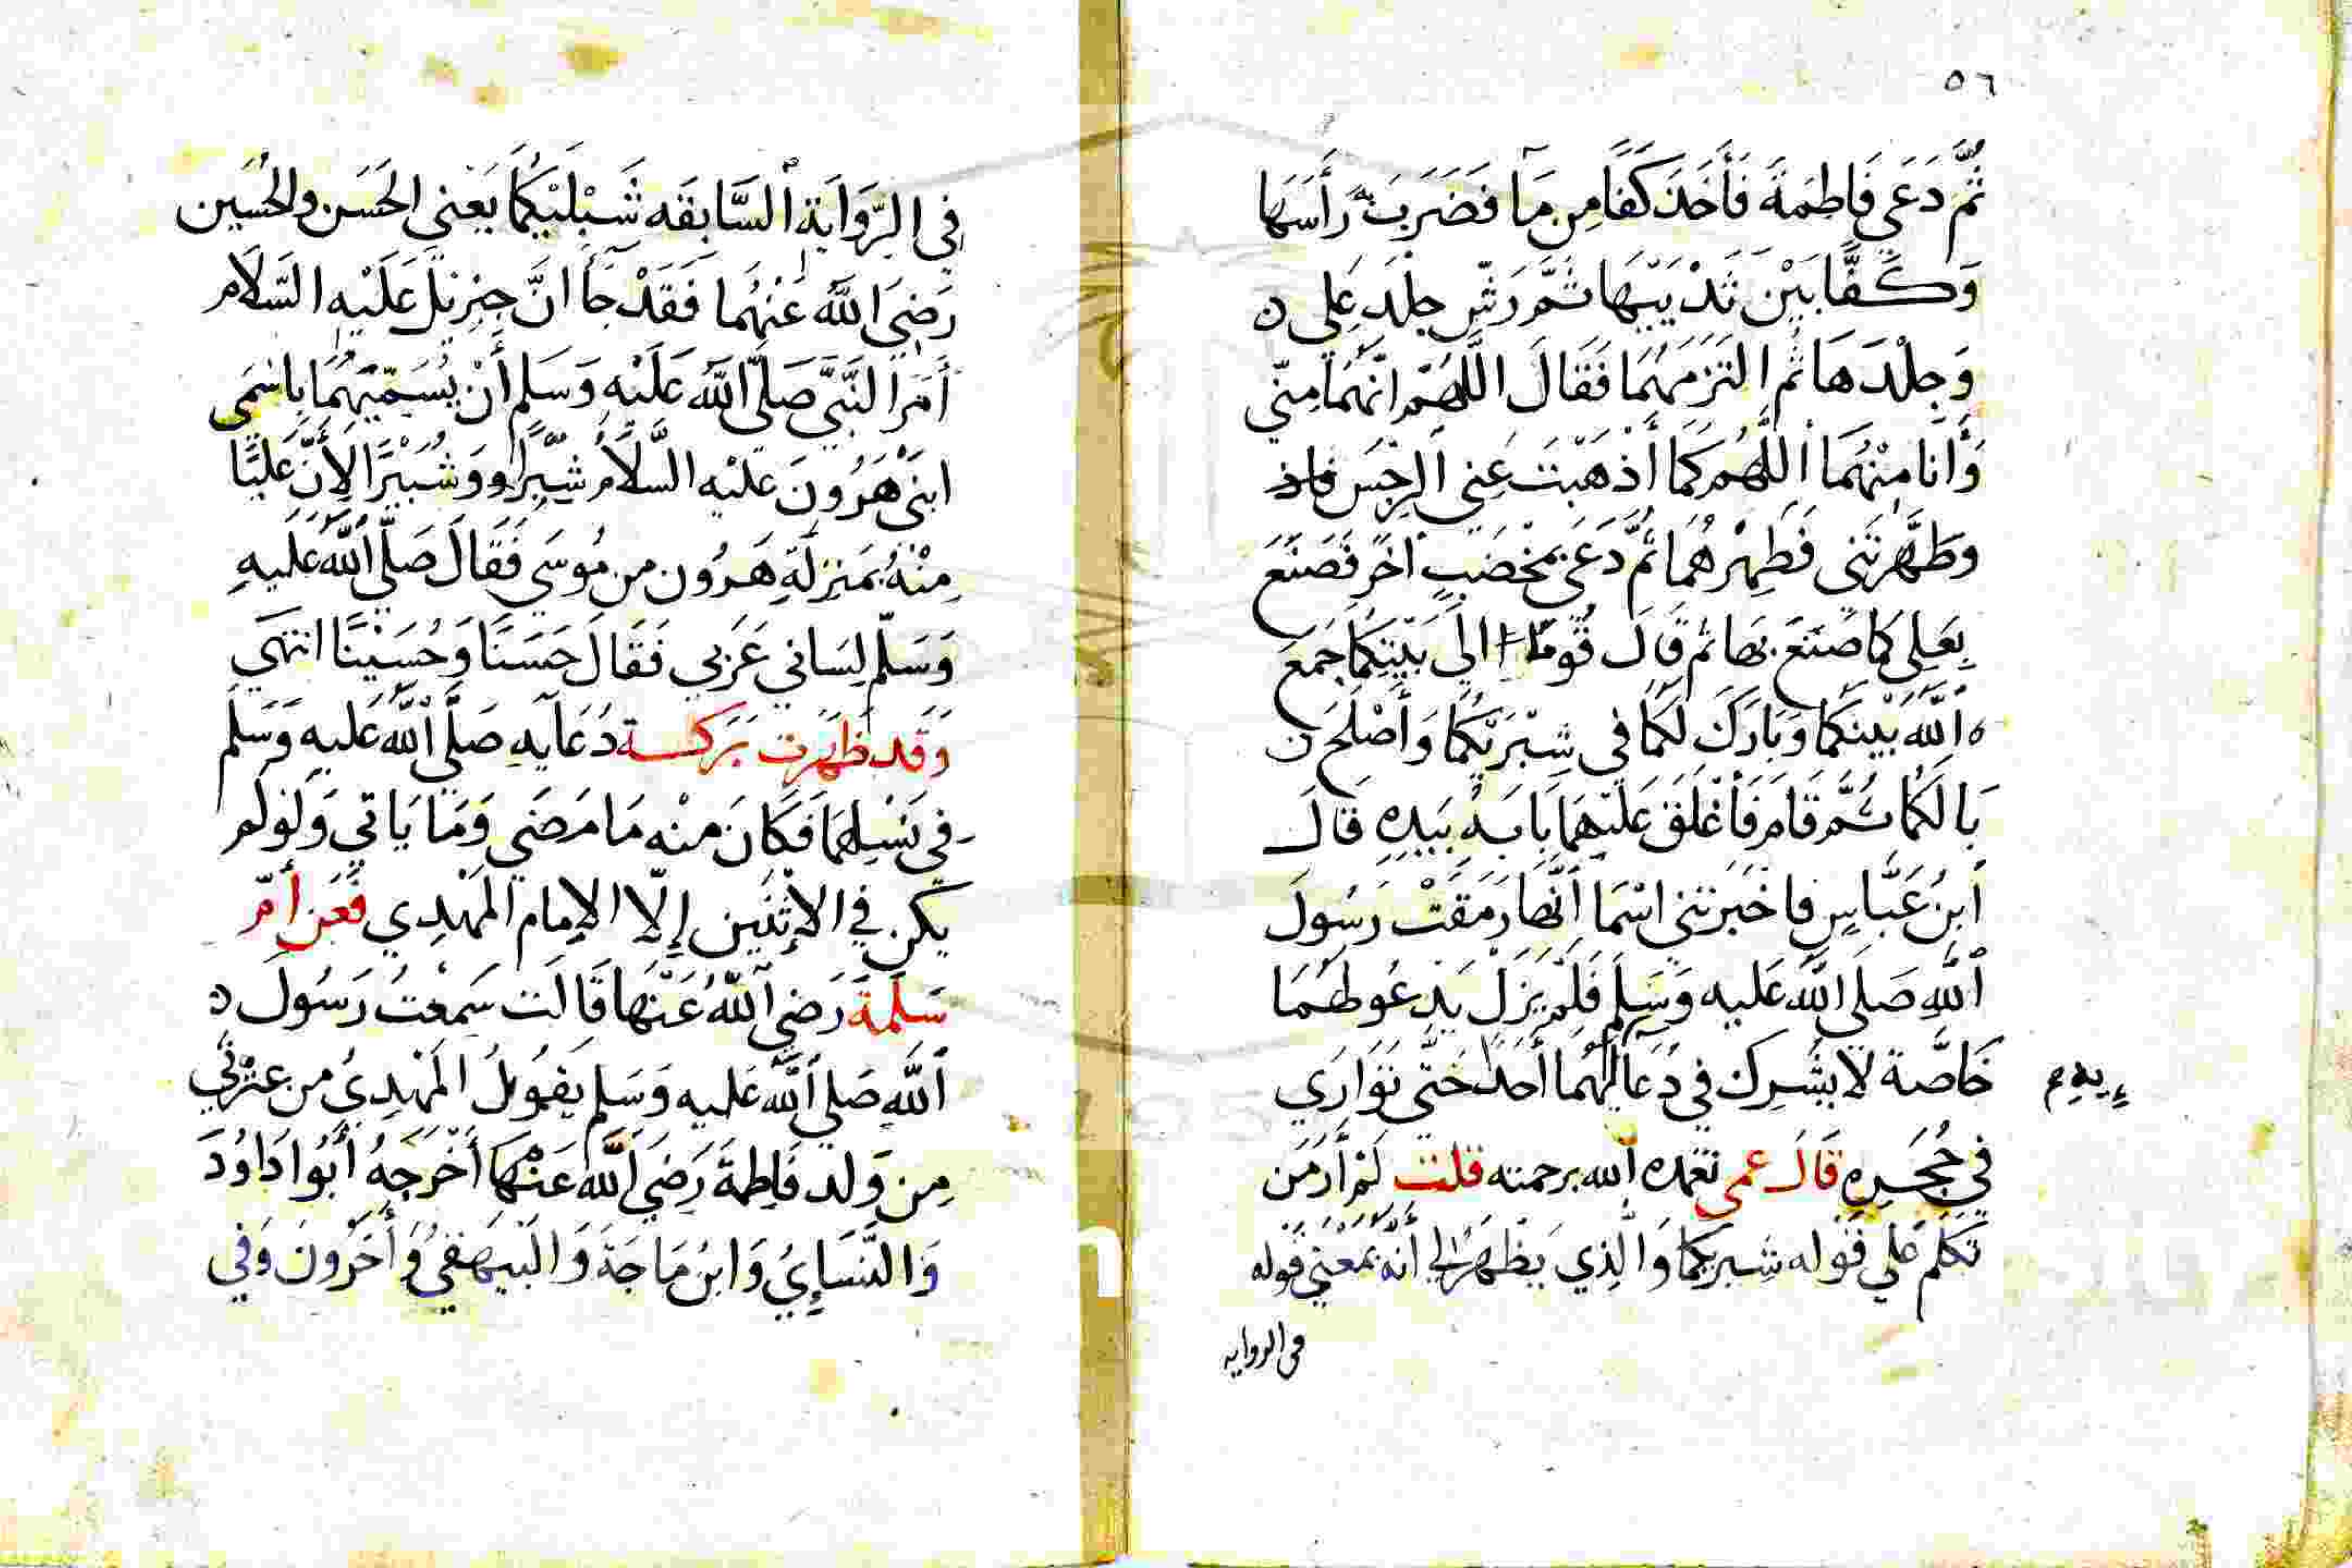 ٥٦
ثُمَّ دَعَى فَاطِمَةَ فَأَخَذَ كَفًّا مِن مَآ فَضَرَبَ رَأسَهَا
وَكَفًّا بَيْنَ ثَدْيَيْهَا ثُمَّ رَشّ جِلْدَ عَلِى ه
وَجِلْدَهَا ثُم التَزَمَهُمَا فَقَالَ اللَّهُمّ انّهُمَا مِنّي
وَأَنَا مِنْهُمَا اللَّهُم كَمَا أَذهَبْتَ عَنِي الرِّجْسَ
وَطَهَّرتَنى فَطَهِّرْهُمَا ثُمَّ دَعَى بمِخْضَبٍ آخَر فَصَنَعَ
بِعَلِى كَمَا صَنَعَ بهَا ثم قَالَ قُومَا إِلى بَيْتِكُمَا جَمَعَ
اللّه بَيْنَكُمَا وَبَارَكَ لَكُمَا في شِبْرَيْكُمَا وَأَصْلَحَ
بَالَكُمَا ثُمَّ قَامَ فَأَغْلَقَ عَلَيْهِمَا بَابَهُ بيَدِهِ قَالَ
ابنُ عَبَّاسٍ فاخْبَرتني اسْمَا أَنَّهَا رَمَقَتْ رَسُولَ
اللّهِ صَلى اللّه عَليه وَسَلم فَلَمْ يَزَلْ يَدعُو لهُمَا
خَاصَّة لا يشْرِك في دُعَا لهُمَا أَحَدًا حَتَّى تَوَارَي
فِي حُجَرِهِ قَالَ عمى تغمده الله برحمته قلت لَمْ أَرَ مَن
تَكَلّمَ عَلي قَوله شِبرَيكما وَالَّذِي يَظْهَرُ لي أَنَّه بمَعْنى قَوله
فى الروايه
فِي الرِّوَايَةِ السَّابِقَه شَبْلَيْكُمَا يَعْني الحَسَن والحُسَين
رَضِيَ اللّهُ عَنْهُمَا فَقَدْ جَآ انَّ جِبْرِيْلَ عَلَيْهِ السَّلَام
أَمَرَ النَّبيَّ صَلَّى اللّهُ عَلَيْهِ وَسَلم أَنْ يُسَمّيَهُمَا بِاسْمَي
ابنَىْ هَرُونَ عَلَيْهِ السَّلَامُ شبَّرًا وَشُبَيْرًا لِأَنَّ عَليًّا
مِنْهُ بمَنزِلَةِ هَرُون من مُوسَى فَقَالَ صَلّى اللّهُ عَليهِ
وَسَلّم لِسَاني عَرَبي فَقَالَ حَسَنًا وَحُسَيْنًا انتهَى
وَقَد ظَهَرت بَرَكة دُعَايهِ صَلَّى اللّهُ عَليهِ وَسَلَّمَ
فى نَسْلِهمَا فَكَانَ منْه مَا مَضَي وَمَا يَاتي وَلَو لَم
يَكُن في الاِثْنَين إِلّا الإِمَام المَهْدِي فَعَن أمّ
سَلَمَةَ رَضي اللّهُ عَنْهَا قَالَت سَمِعْتُ رَسُولَ ه
اللّهِ صَلى اللّه عَليه وَسَلم يَقُولُ المَهْدِيُ من عِتْرَتي
مِن وَلد فَاطِمَةَ رَضِيَ اللّه عَنْهَا أَخْرَجَهُ أَبُوا دَاوُدَ
وَالنَّسَايُ وَابنُ مَاجَة وَالبَيهَقيُ وَأَخَرُونَ وَفي